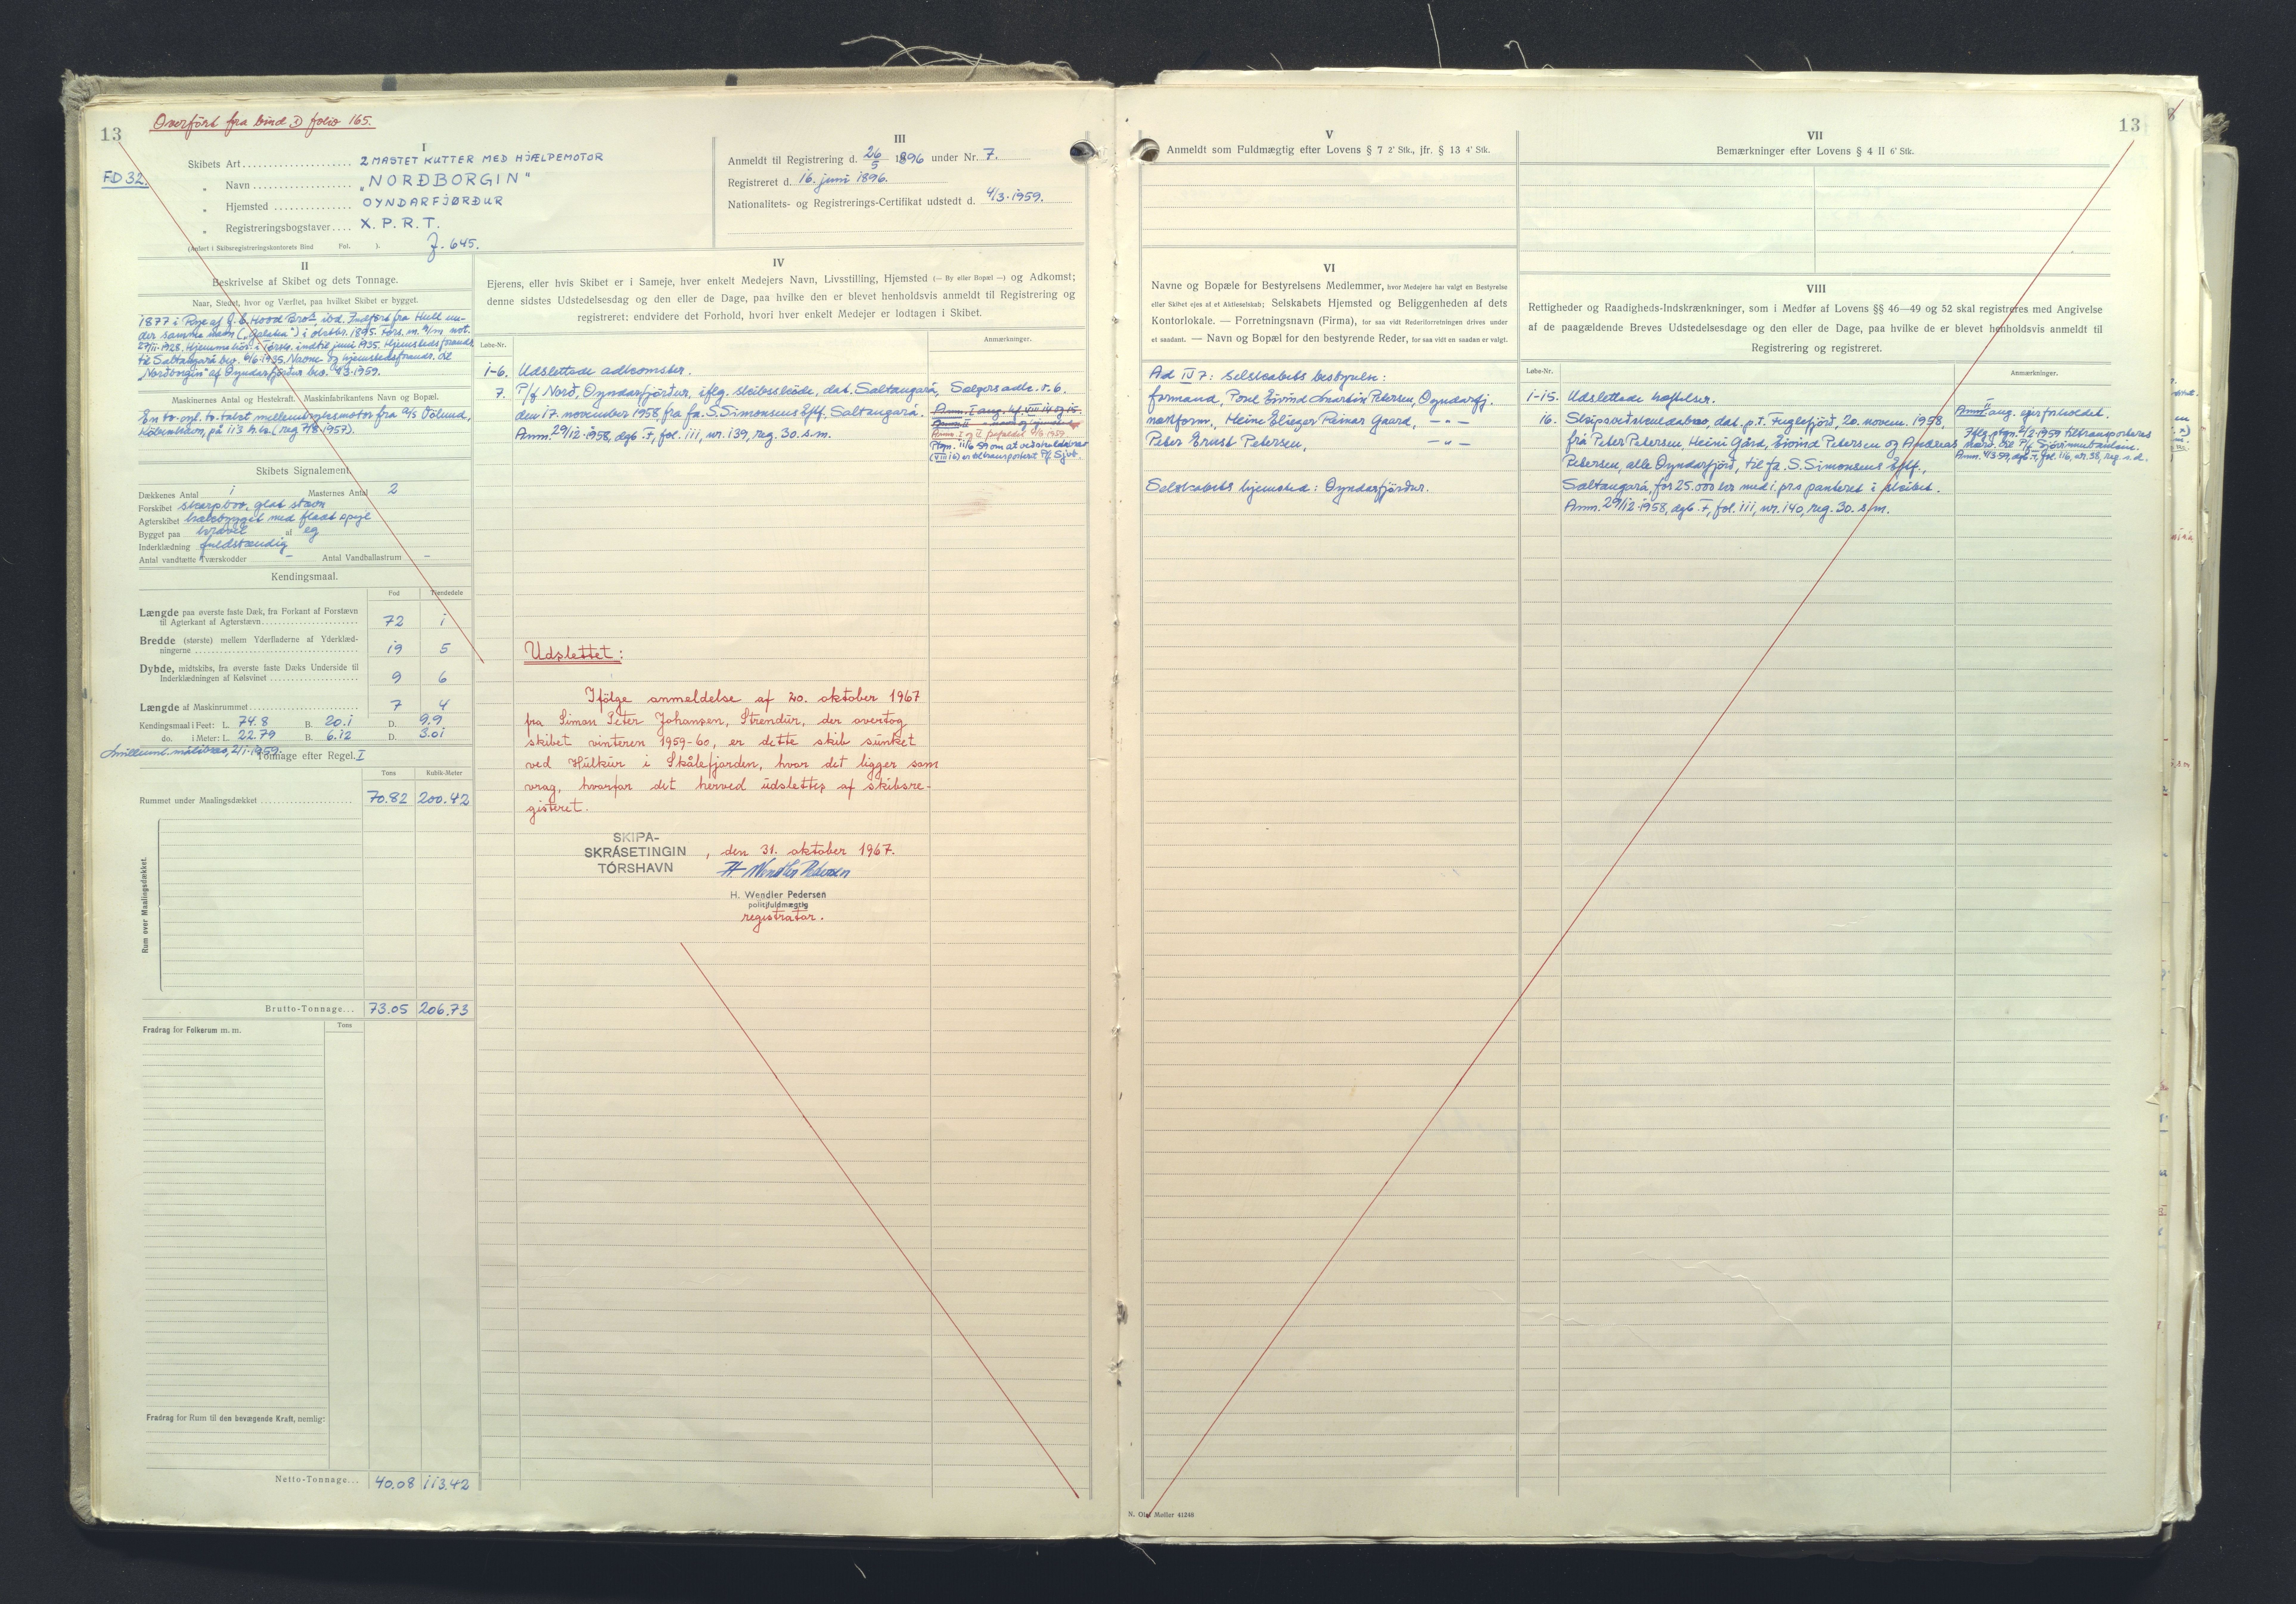 Overført fra bind I folio 165.
13
FD 32.
I
Skibets Art 2 MASTET KUTTER MED HJÆLPEMOTOR
„ Navn „NORÐBORGIN“
„ Hjemsted OYNDARFJØRÐUR
„ Registreringsbogstaver X. P. R. T.
(Anført i Skibsregistreringskontorets Bind Fol. ).
J. 645.
III
Anmeldt til Registrering d. 26/5 1896 under Nr. 7.
Registreret d. 16. juni 1896.
Nationalitets- og Registrerings-Certifikat udstedt d. 4/3-1959.
II
Beskrivelse af Skibet og dets Tonnage.
Naar, Stedet, hvor og Værftet, paa hvilket Skibet er bygget.
1877 i Rye af J. C. Hood Bros, ibd. Indført fra Hull un-
der samme navn („Galatea“) i oktbr. 1895. Fors. m. h/m not.
27/11-1928. Hjemmehør. i Tórsh. indtil juni 1935. Hjemstedsforandr.
til Saltangará bev. 6/6-1935. Navne og hjemstedsforandr. til
„Norðborgin“ af Oyndarfjørður bev. 4/3-1959.
Maskinernes Antal og Hestekraft. Maskinfabrikantens Navn og Bopæl.
En to-cyl. to-takt mellemtryksmotor fra A/S Völund,
København, på 113 h.k. (reg 7/8-1957).
Skibets Signalement.
Dækkenes Antal 1 Masternes Antal 2
Forskibet skarpbov, glat stavn
Agterskibet hækbygget med fladt spejl
Bygget paa kravel af eg
Inderklædning fuldstændig
Antal vandtætte Tværskodder – Antal Vandballastrum –
Kendingsmaal.
Fod Tiendedele
Længde paa øverste faste Dæk, fra Forkant af Forstævn
til Agterkant af Agterstævn 72 1
Bredde (største) mellem Yderfladerne af Yderklæd-
ningerne 19 5
Dybde, midtskibs, fra øverste faste Dæks Underside til
Inderklædningen af Kølsvinet 9 6
Længde af Maskinrummet 7 4
Kendingsmaal i Feet: L. 74.8 B. 20.1 D. 9.9
do. i Meter: L. 22.79 B. 6.12 D. 3.01
målebrev, 2/1-1959.
Tonnage efter Regel I
Tons Kubik-Meter
Rummet under Maalingsdækket 70.82 200.42
Rum over Maalingsdækket.
Brutto-Tonnage... 73.05 206.73
Fradrag for Folkerum m. m. Tons
Fradrag for Rum til den bevægende Kraft, nemlig:
Netto-Tonnage... 40.08 113.42
IV
Ejerens, eller hvis Skibet er i Sameje, hver enkelt Medejers Navn, Livsstilling, Hjemsted (— By eller Bopæl —) og Adkomst;
denne sidstes Udstedelsesdag og den eller de Dage, paa hvilke den er blevet henholdsvis anmeldt til Registrering og
registreret; endvidere det Forhold, hvori hver enkelt Medejer er lodtagen i Skibet.
Løbe-Nr. Anmærkninger.
1-6. Udslettede adkomster.
7. P/f Norð, Oyndarfjørður, iflg. skibsskøde, dat. Saltangará,
den 17. november 1958 fra fa. S. Simonsens Eftf. Saltangará.
Anm. 29/12-1958, dgb. F, fol. 111, nr. 139, reg. 30. s.m.
Sælgers adk. v. 6.
Anm. I ang. hf. VIII 14 og 15.
Anm. I og II frafaldet 11/6 1959.
Ptgn. 11/6 59 om at veðskuldabrev
(VIII 16) er tiltransporteret P/f Sjvb.
Udslettet:
Ifølge anmeldelse af 20. oktober 1967
fra Simon Peter Johansen, Strendur, der overtog
skibet vinteren 1959-60, er dette skib sunket
ved Húlkur i Skålefjorden, hvor det ligger som
vrag, hvorfor det herved udslettes af skibsre-
gisteret.
SKIPA-
SKRÁSETINGIN
TÓRSHAVN
, den 31. oktober 1967.
H Wendler Pedersen
H. Wendler Pedersen
politifuldmægtig
registrator.
13
V
Anmeldt som Fuldmægtig efter Lovens § 7 2' Stk., jfr. § 13 4' Stk.
VII
Bemærkninger efter Lovens § 4 II 6' Stk.
VI
Navne og Bopæle for Bestyrelsens Medlemmer, hvor Medejere har valgt en Bestyrelse
eller Skibet ejes af et Aktieselskab; Selskabets Hjemsted og Beliggenheden af dets
Kontorlokale. — Forretningsnavn (Firma), for saa vidt Rederiforretningen drives under
et saadant. — Navn og Bopæl for den bestyrende Reder, for saa vidt en saadan er valgt.
Ad IV 7: Selskabets bestyrelse:
formand, Poul Eivind Martin Petersen, Oyndarfj.
næstform., Heine Elieser Reinar Gaard, – " –
Peter Ernst Petersen, – " –
Selskabets hjemsted: Oyndarfjørður.
VIII
Rettigheder og Raadigheds-Indskrænkninger, som i Medfør af Lovens §§ 46—49 og 52 skal registreres med Angivelse
af de paagældende Breves Udstedelsesdage og den eller de Dage, paa hvilke de er blevet henholdsvis anmeldt til
Registrering og registreret.
Løbe-Nr. Anmærkninger.
1-15. Udslettede hæftelser.
16. Skipsveðskuldabrev, dat. p.t. Fuglefjörð, 20. novem. 1958,
frá Peter Petersen, Heini Gård, Eivind Petersen og Andreas
Petersen, alle Oyndarfjörð, til fa. S. Simonsens Eftf.,
Saltangará, for 25.000 kr med 1. prs panteret i skibet.
Anm. 29/12-1958, dgb. F, fol. 111, nr. 140, reg. 30. s/m.
Anm. ang. ejerforholdet.
Iflg. ptgn. 2/2-1959 tiltransporteres
nærv. bre P/f Sjóvinnubankin.
Anm. 4/3 59, dgb F, fol. 116, nr. 38, reg. s.d.
N. Olaf Møller 41248